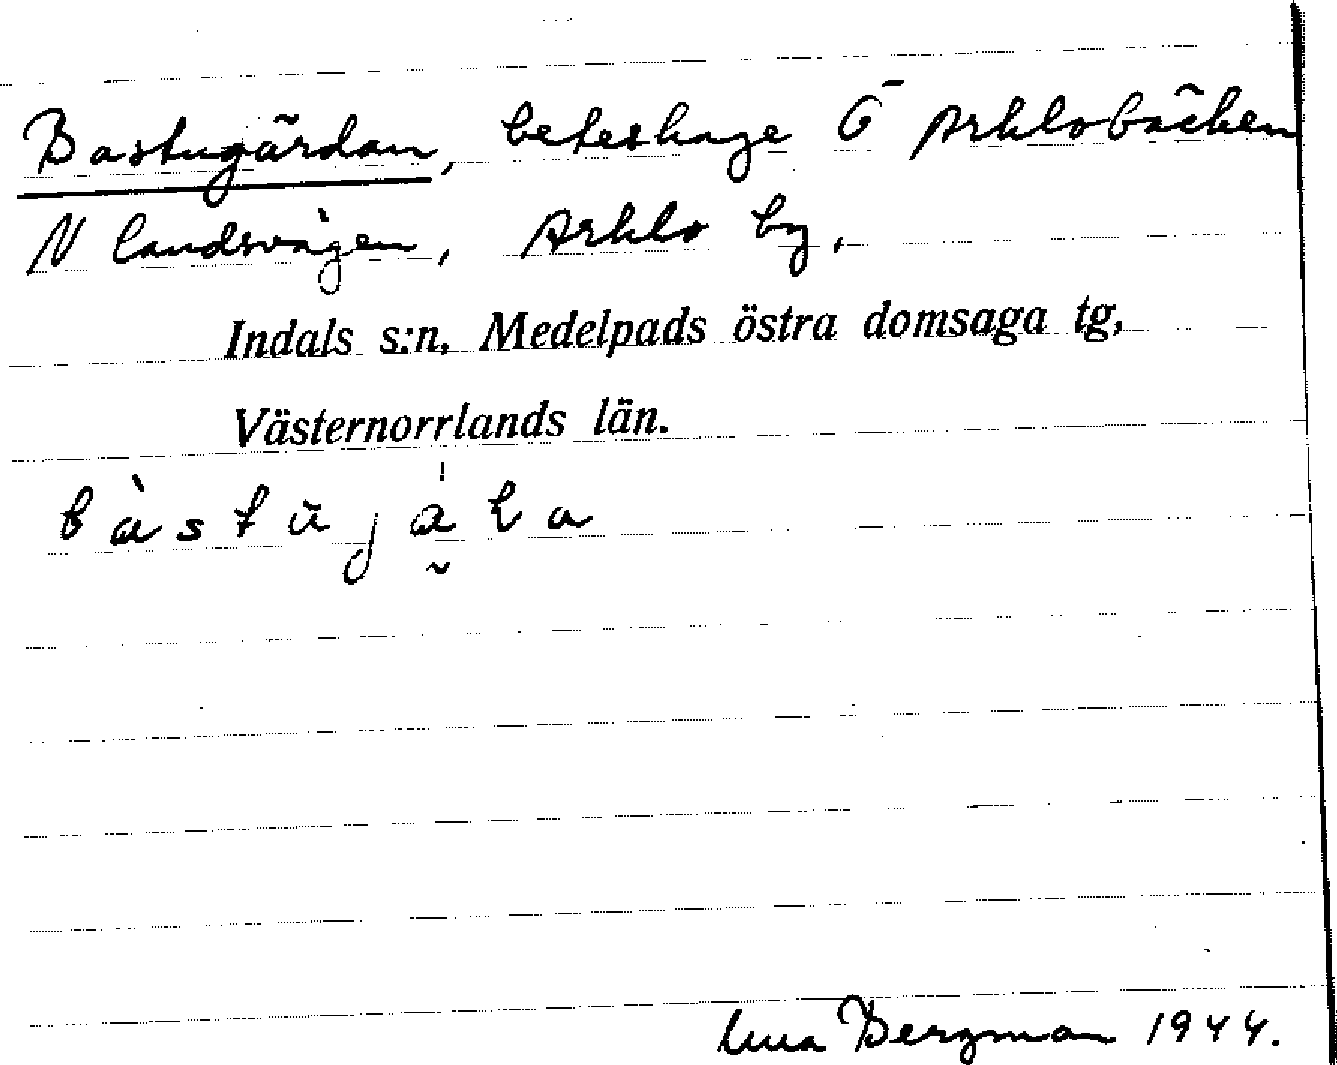 Bastugärdan, beteshage Ö Arklobäcken
N landsvägen, Arklo by,
Indals s:n, Medelpads östra domsaga tg,
Västernorrlands län.
Bergman 1944.